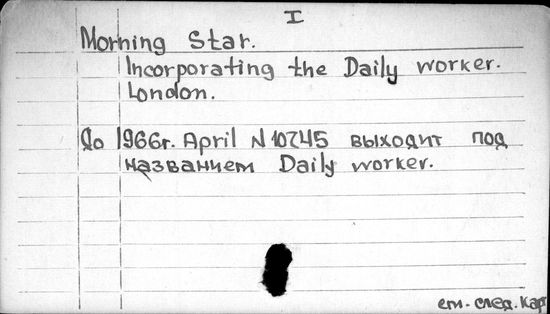 I
Morning Star.
Incorporating the Daily worker.
London.
До 1966г. April N 10745 выходит под
названием Daily worker.
см. след. карт